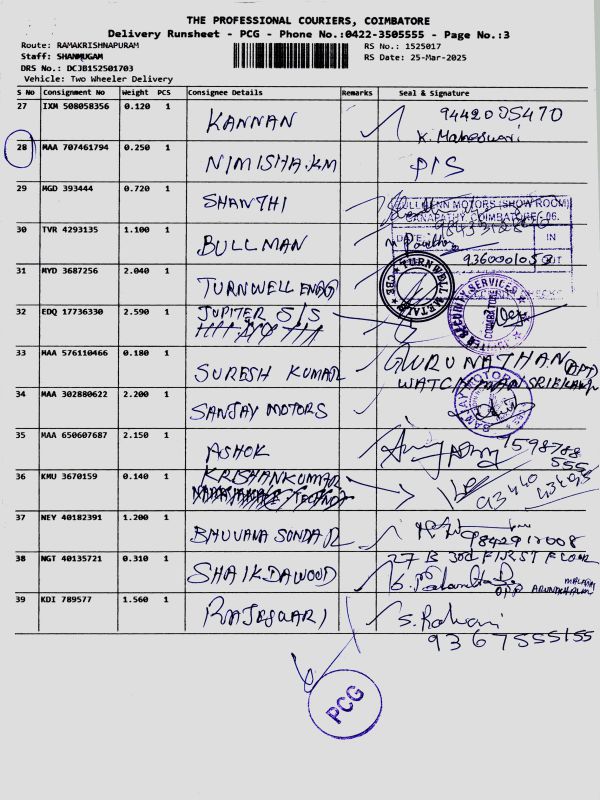 THE PROFESSIONAL COURIERS, COIMBATORE
Delivery Runsheet - PCG - Phone No.:0422-3505555 - Page No.:3
Route: RAMAKRISHNAPURAM
RS No.: 1525017
Staff: SHANMUGAM
RS Date: 25-Mar-2025
DRS No.: DCJB152501703
Vehicle: Two Wheeler Delivery
S No Consignment No Weight PCS Consignee Details Remarks Seal & Signature
27 IXM 508058356 0.120 1 KANNAN 9442005470
K. Maheswari
28 MAA 707461794 0.250 1 NIMISHA.KM P/S
29 MGD 393444 0.720 1 SHANTHI
(SHOW ROOM)
GANAPATHY, COIMBATORE-06.
30 TVR 4293135 1.100 1 BULLMAN
DATE IN
OUT
31 MYD 3687256 2.040 1 TURNWELL ENGG
TURNWELL METALS CBE
32 EDQ 17736330 2.590 1 JUPITER S/S
33 MAA 576110466 0.180 1 SURESH KUMAR GURUNATHAN (APT)
WATCHMAN
34 MAA 302880622 2.200 1 SANJAY MOTORS
SANJAY MOTORS
35 MAA 650607687 2.150 1 ASHOK
36 KMU 3670159 0.140 1 KRISHANKUMAR
93440
37 NEY 40182391 1.200 1 BHUVANA SONDAR 9842917008
38 NGT 40135721 0.310 1 SHAIK DAWOOD 27 B 3rd FIRST FLOOR
OPP
39 KDI 789577 1.560 1 RAJESWARI
9367555155
PCG